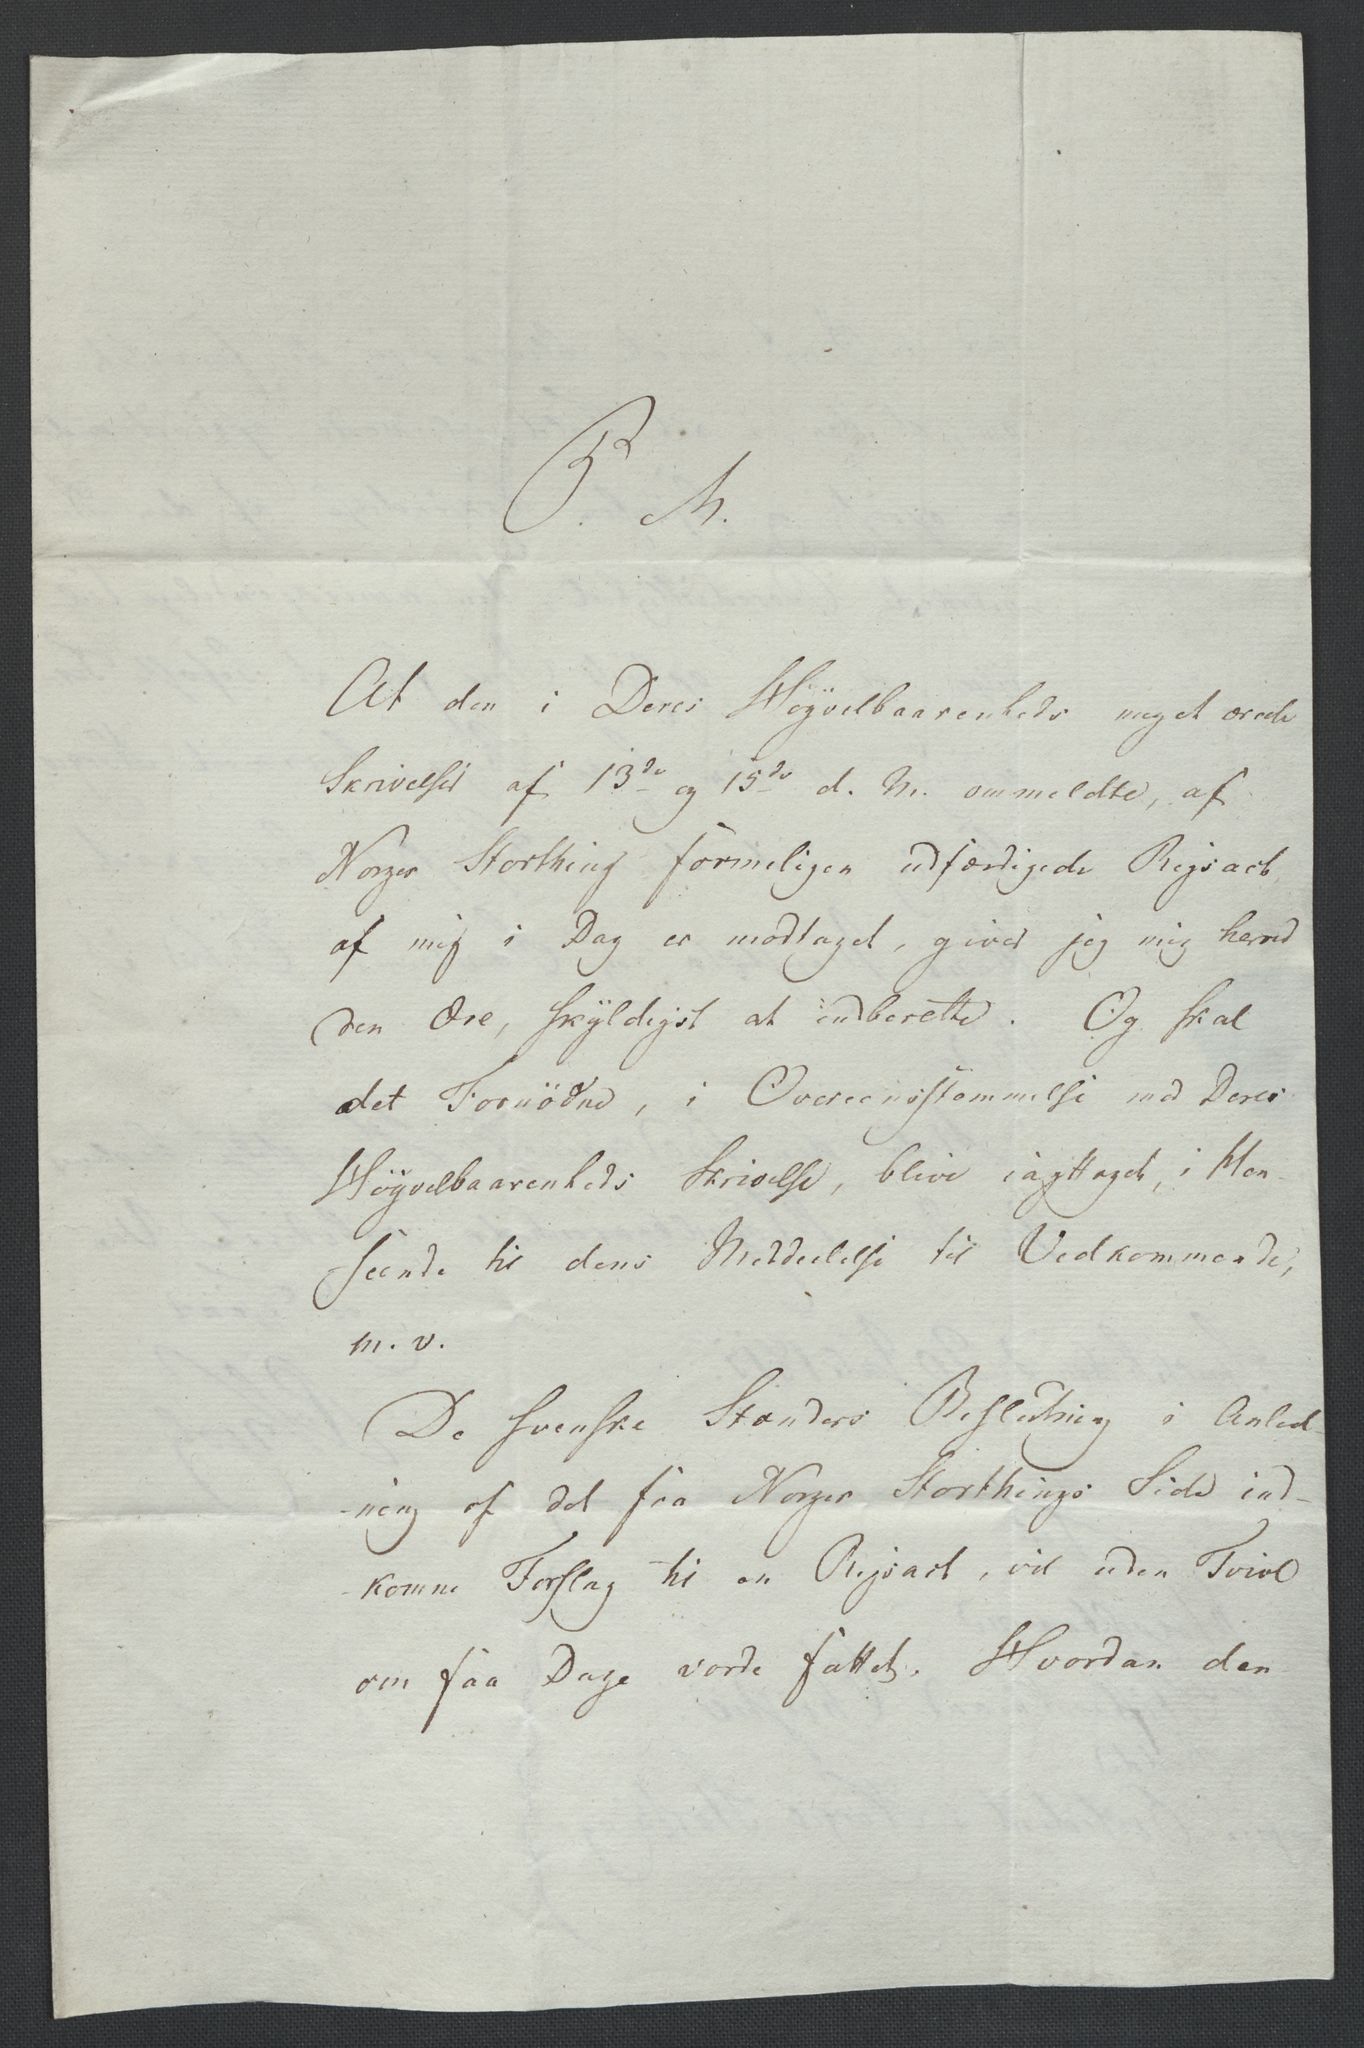 P. M.
At den i Deres Höyvelbaarenheds meget ærede
Skrivelser af 13de og 15de d. M. ommeldte, af
Norges Storthing formeligen udfærdigede Rigsact
af mig i Dag er modtaget, giver jeg mig herved
den Ære, skÿldigst at indberette. Og skal
det Fornödne, i Overeensstemmelse med Deres
Höyvelbaarenheds Skrivelse, blive iagttaget, i Hen-
seende til dens Meddeelelse til Vedkommende,
m. v.
De svenske Stænders Beslutning i Anled-
-ning af det fra Norges Storthings Side ind-
-komne Forslag til en Rigsact, vil uden Tvivl
om faa Dage vorde fattet. Hvordan den